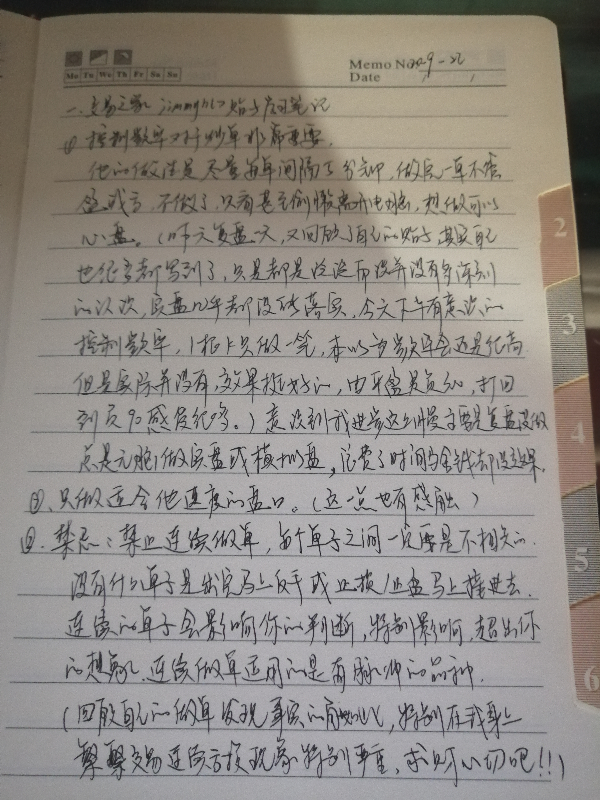 Mo Tu We Th Fr Sa Su
Memo No. 9-22
Date / /
一、交易之家 帖子启用笔记
① 控制频率对于炒单非常重要.
他的做法是尽量每单间隔 分钟, 做完一单不管
盈或亏, 不做了, 只看甚至倒 离开电脑, 想做可以
心盘。(昨天复盘一天, 又回放了自己的帖子 其实自己
也很多都写到了, 只是却是泛泛而谈并没有多深刻
的认识, 实盘几乎都没能落实, 今天下午有意识的
控制频率, 1根K只做一笔, 本以为 频率会还是很高
但是实际并没有, 效果挺好的, 由 富足负 , 打回
到负90感觉很 。) 意识到我进步这么慢主要是复盘没做
总是无脑做实盘或模拟盘, 浪费了时间与金钱却没效果.
②、只做适合他速度的盘口。(这一点也有感触)
③、禁忌: 禁止连续做单, 每个单子之间一定要是不相关的.
没有什么单子是出完马上反手或止损/止盈马上接进去.
连续的单子会影响你的判断, 特别影响, 超出你
的想象, 连续做单适用的是有脉冲的品种.
(回放自己的做单发现真实的 , 特别在我身上
频繁交易连续亏损现象特别严重, 求财心切吧!!!)
2
3
4
5
6